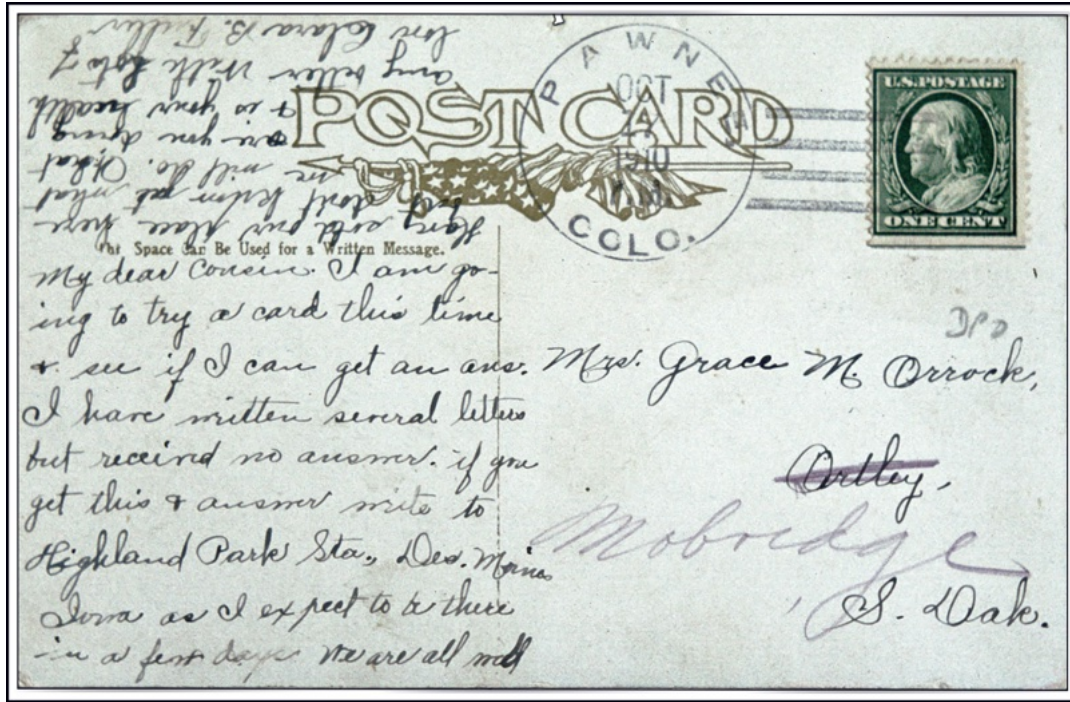 POST CARD
PAWNEE
OCT
1910
COLO.
U.S. POSTAGE
ONE CENT
This Space Can Be Used for a Written Message.
My dear Cousin. I am go-
ing to try a card this time
& see if I can get an ans.
I have written several letters
but received no answer. if you
get this & answer write to
Highland Park Sta., Des. Moines
Iowa as I expect to be there
in a few days We are all well
Have sold our place here
but don't know yet what
we will do. What
are you doing
& is your health
any better With lots of
love Clara B. Fuller
DPO
Mrs. Grace M. Orrock,
Artley,
Mobridge
S. Dak.